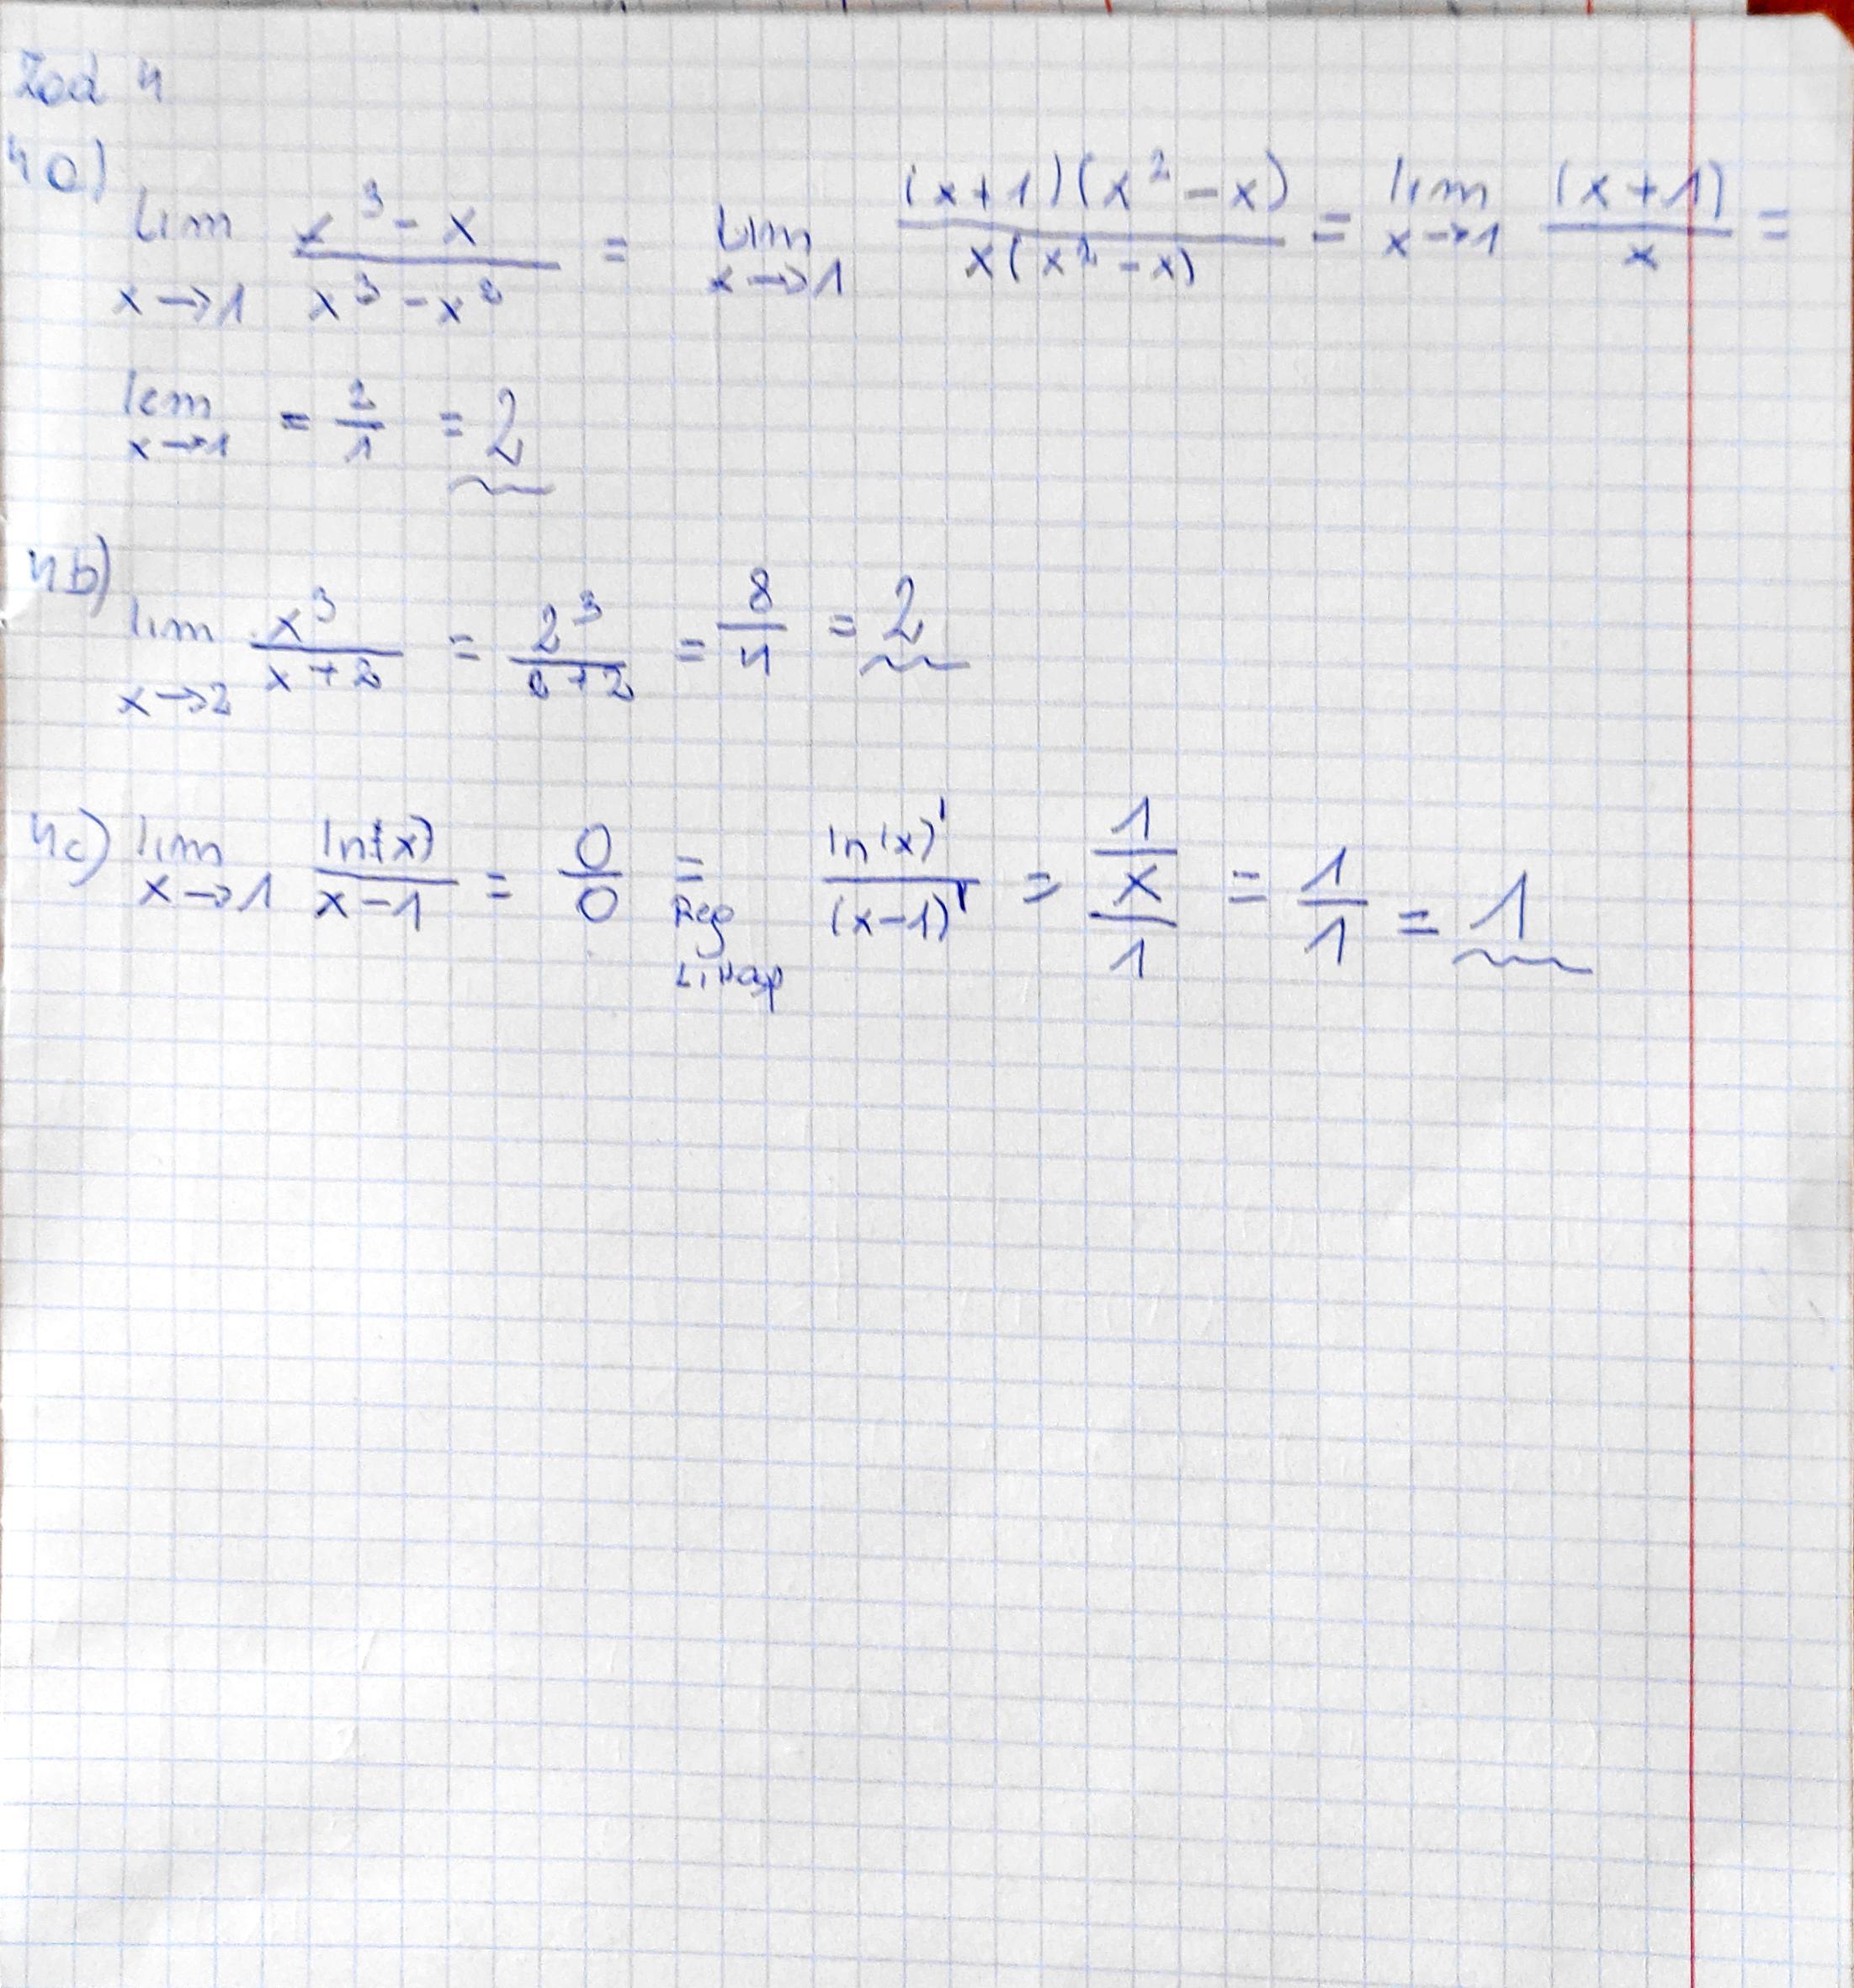 Zad 4
4a)
lim x→1 (x³ - x)/(x³ - x²) = lim x→1 ((x+1)(x² - x))/(x(x² - x)) = lim x→1 (x+1)/x =
lim x→1 = 2/1 = 2
4b)
lim x→2 x³/(x+2) = 2³/(2+2) = 8/4 = 2
4c) lim x→1 ln(x)/(x-1) = 0/0 = ln(x)'/(x-1)' = (1/x)/1 = 1/1 = 1
Reg